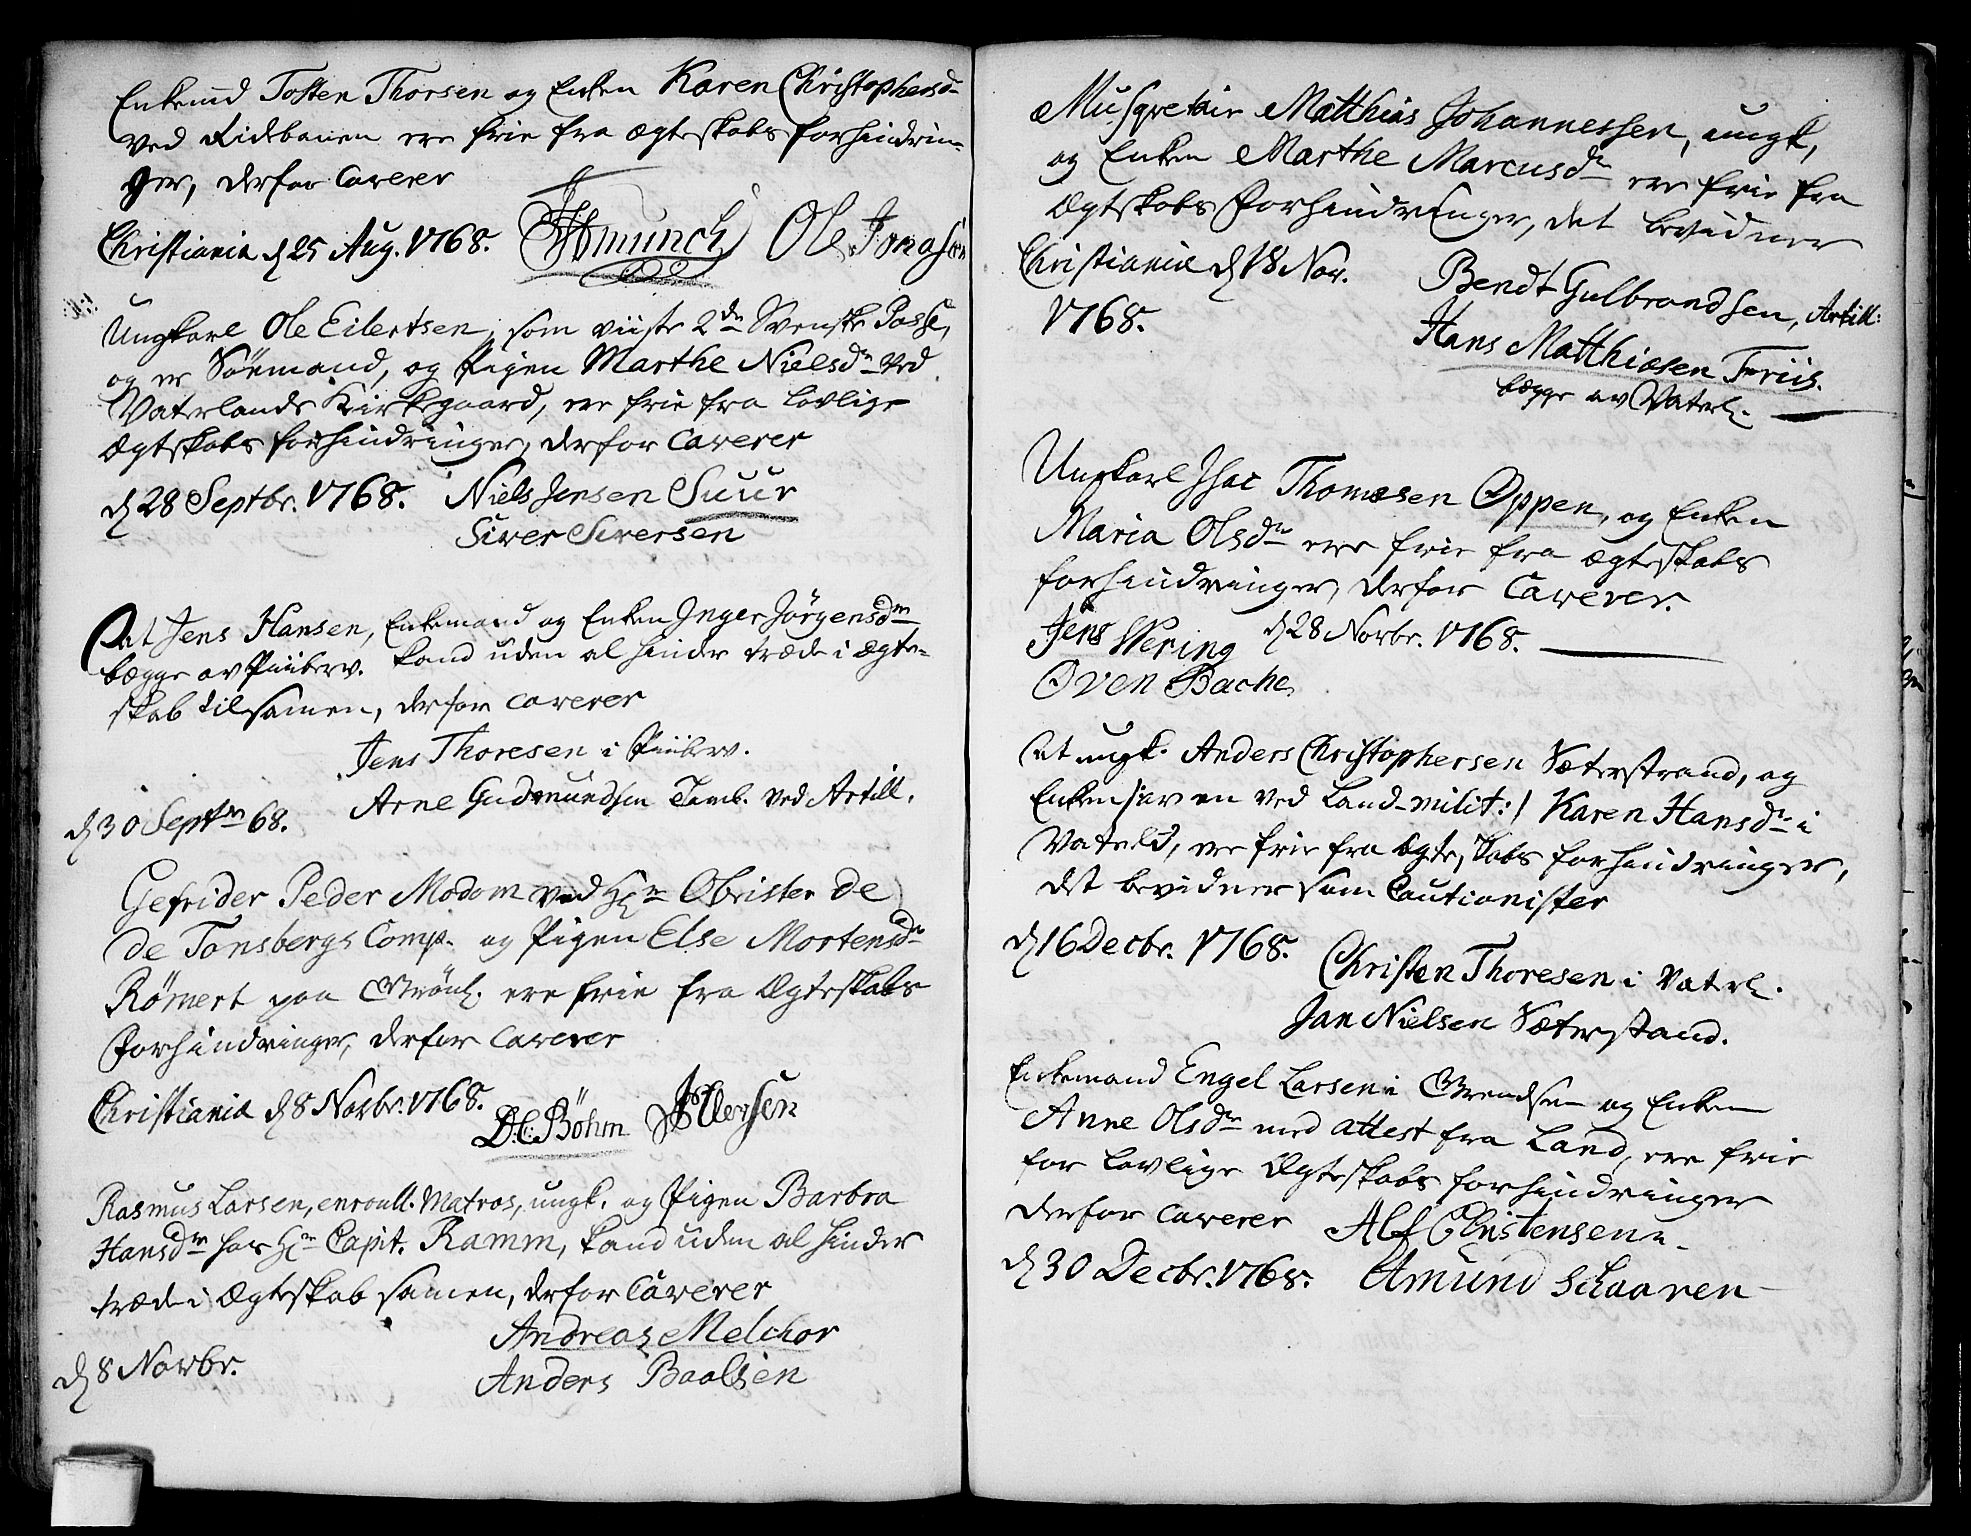 Enkemd Tosten Thorsen og Enken Karen Christophersdr
ved Ridebanen ere frie fra ægteskabs forhindrin-
ger, derfor Caverer
Christiania d 25 Aug. 1768. Munch Ole Jonasen
Ungkarl Ole Eilertsen, som viiste 2de Svenske Passe,
og er Söemand, og Pigen Marthe Nielsdr ved
Vaterlands Kirkegaard, ere frie fra lovlige
Ægtskabs forhindringer, derfor Caverer
d 28 Septbr. 1768. Niels Jensen Suur
Siver Siversen
At Jens Hansen, Enkemand og Enken Inger Jörgensdr
begge av Piiberv. kand uden al hinder træde i ægte-
skab tilsamen, derfor caverer
Jens Thoresen i Piiberv.
Arne Gudmundsen Tamb. ved Artill.
d 30 Septbr 68.
Gefrider Peder Modom ved Hr Obrister de
de Tonsbergs Comp. og Pigen Else Mortensdr
Römert paa Grönl. ere frie fra Ægteskabs
Forhindringer, derfor Caverer
Christiania d 8 Novbr. 1768. D.C. Böhm
Rasmus Larsen, enroull. Matros, ungk. og Pigen Barbra
Hansdr hos Hr Capit. Ramm, kand uden al hinder
træde i Ægteskab samen, derfor Caverer
Andreas Melchor
d 8 Novbr. Anders Baalsen
Musqvetair Matthias Johannessen, ungk,
og Enken Marthe Marcusdr ere frie fra
Ægtskabs Forhindringer, det bevidner
Christiania d 18 Nov. Bendt Gulbrandsen, Artill:
1768. Hans Matthiasen Friis.
begge av Vaterl.
Ungkarl Isac Thomæsen Oppen, og Enken
Maria Olsdr ere frie fra ægteskabs
forhindringer, derfor Caverer.
Jens Wering d 28 Novbr. 1768.
Oven Bache
At ungk. Anders Christophersen Sæterstrand, og
Enken ved Land-milit: / Karen Hansdr i
Vaterld, ere frie fra ægteskabs forhindringer,
det bevidner som Cautionister
d 16 Decbr. 1768. Christen Thoresen i Vaterl.
Jan Nielsen Sæterstand.
Enkemand Engel Larsen i Grendsen og Enken
Anne Olsdr med attest fra Land, ere frie
for lovlige Ægteskabs forhindringer
derfor Caverer Alf Christensen
d 30 Decbr. 1768. Amund Schaaren